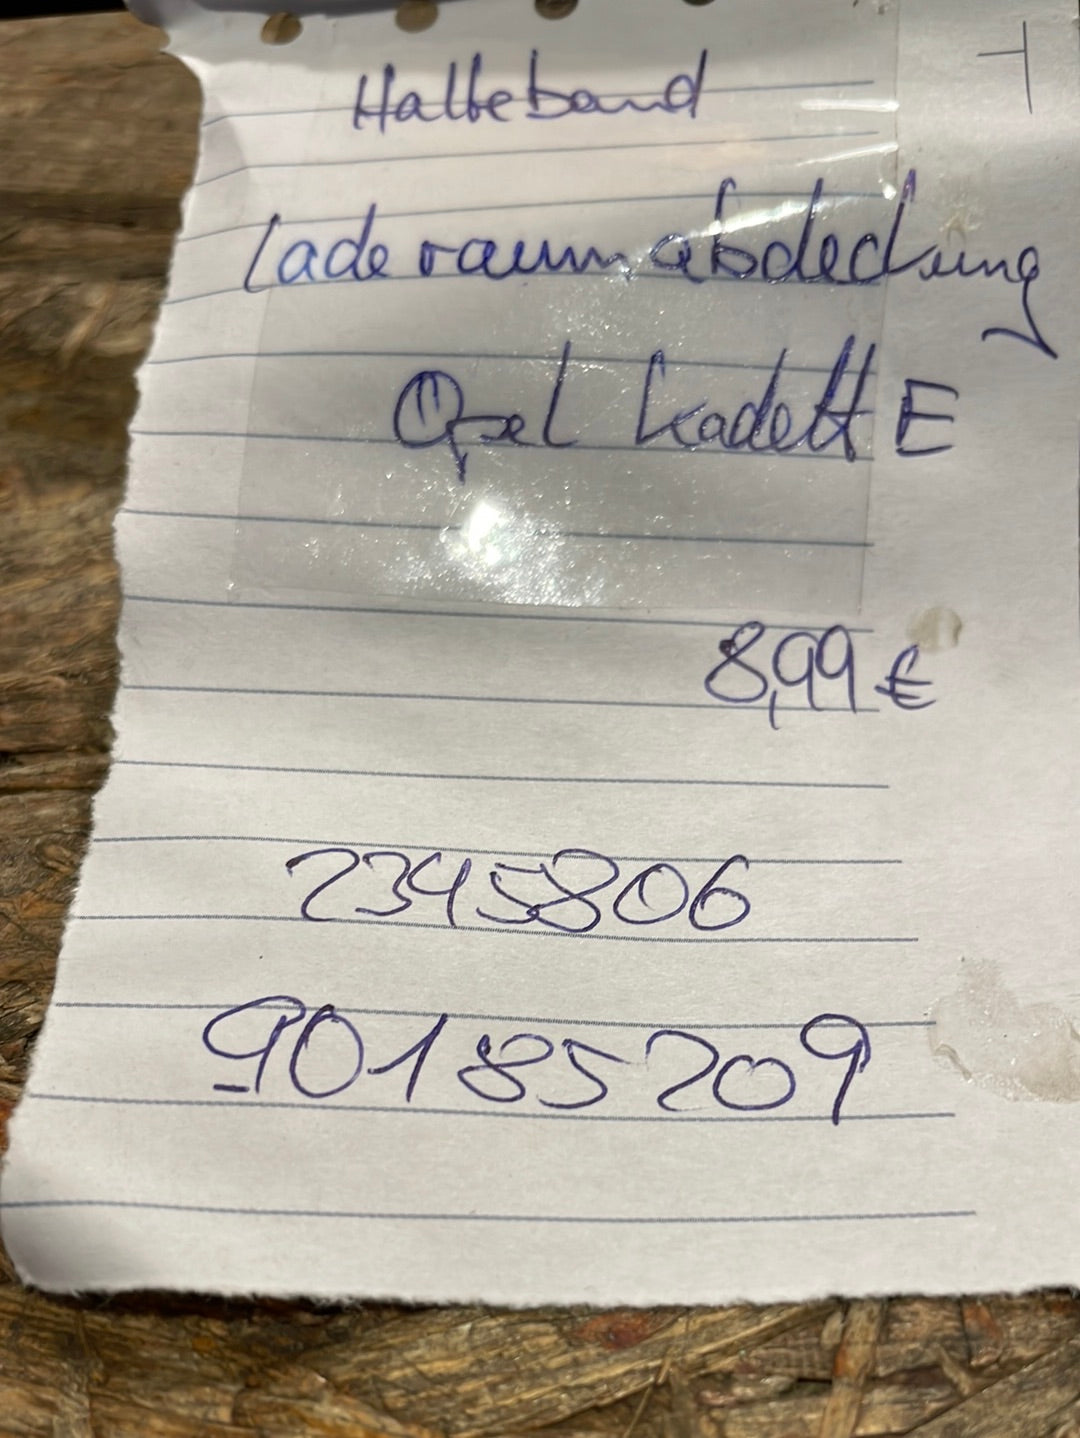 Halteband
Laderaumabdeckung
Opel Kadett E
8,99 €
2345806
90185209